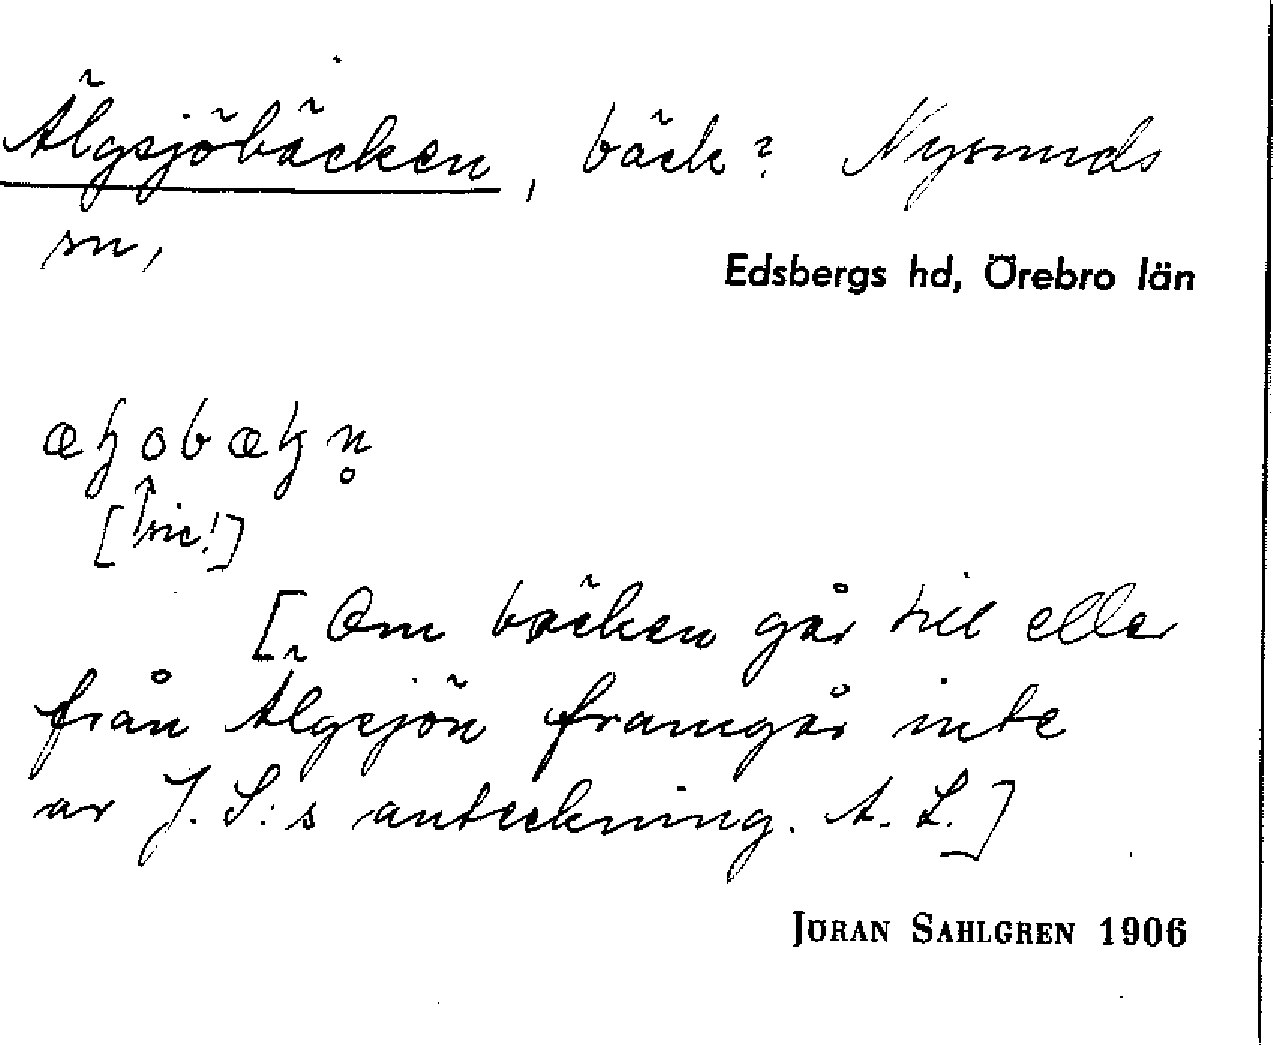 Älgsjöbäcken, bäck? Nysunds
sn,
Edsbergs hd, Örebro län
[sic!]
[Om bäcken går till eller
från Älgsjön framgår inte
av J. S:s anteckning. A. L.]
JÖRAN SAHLGREN 1906